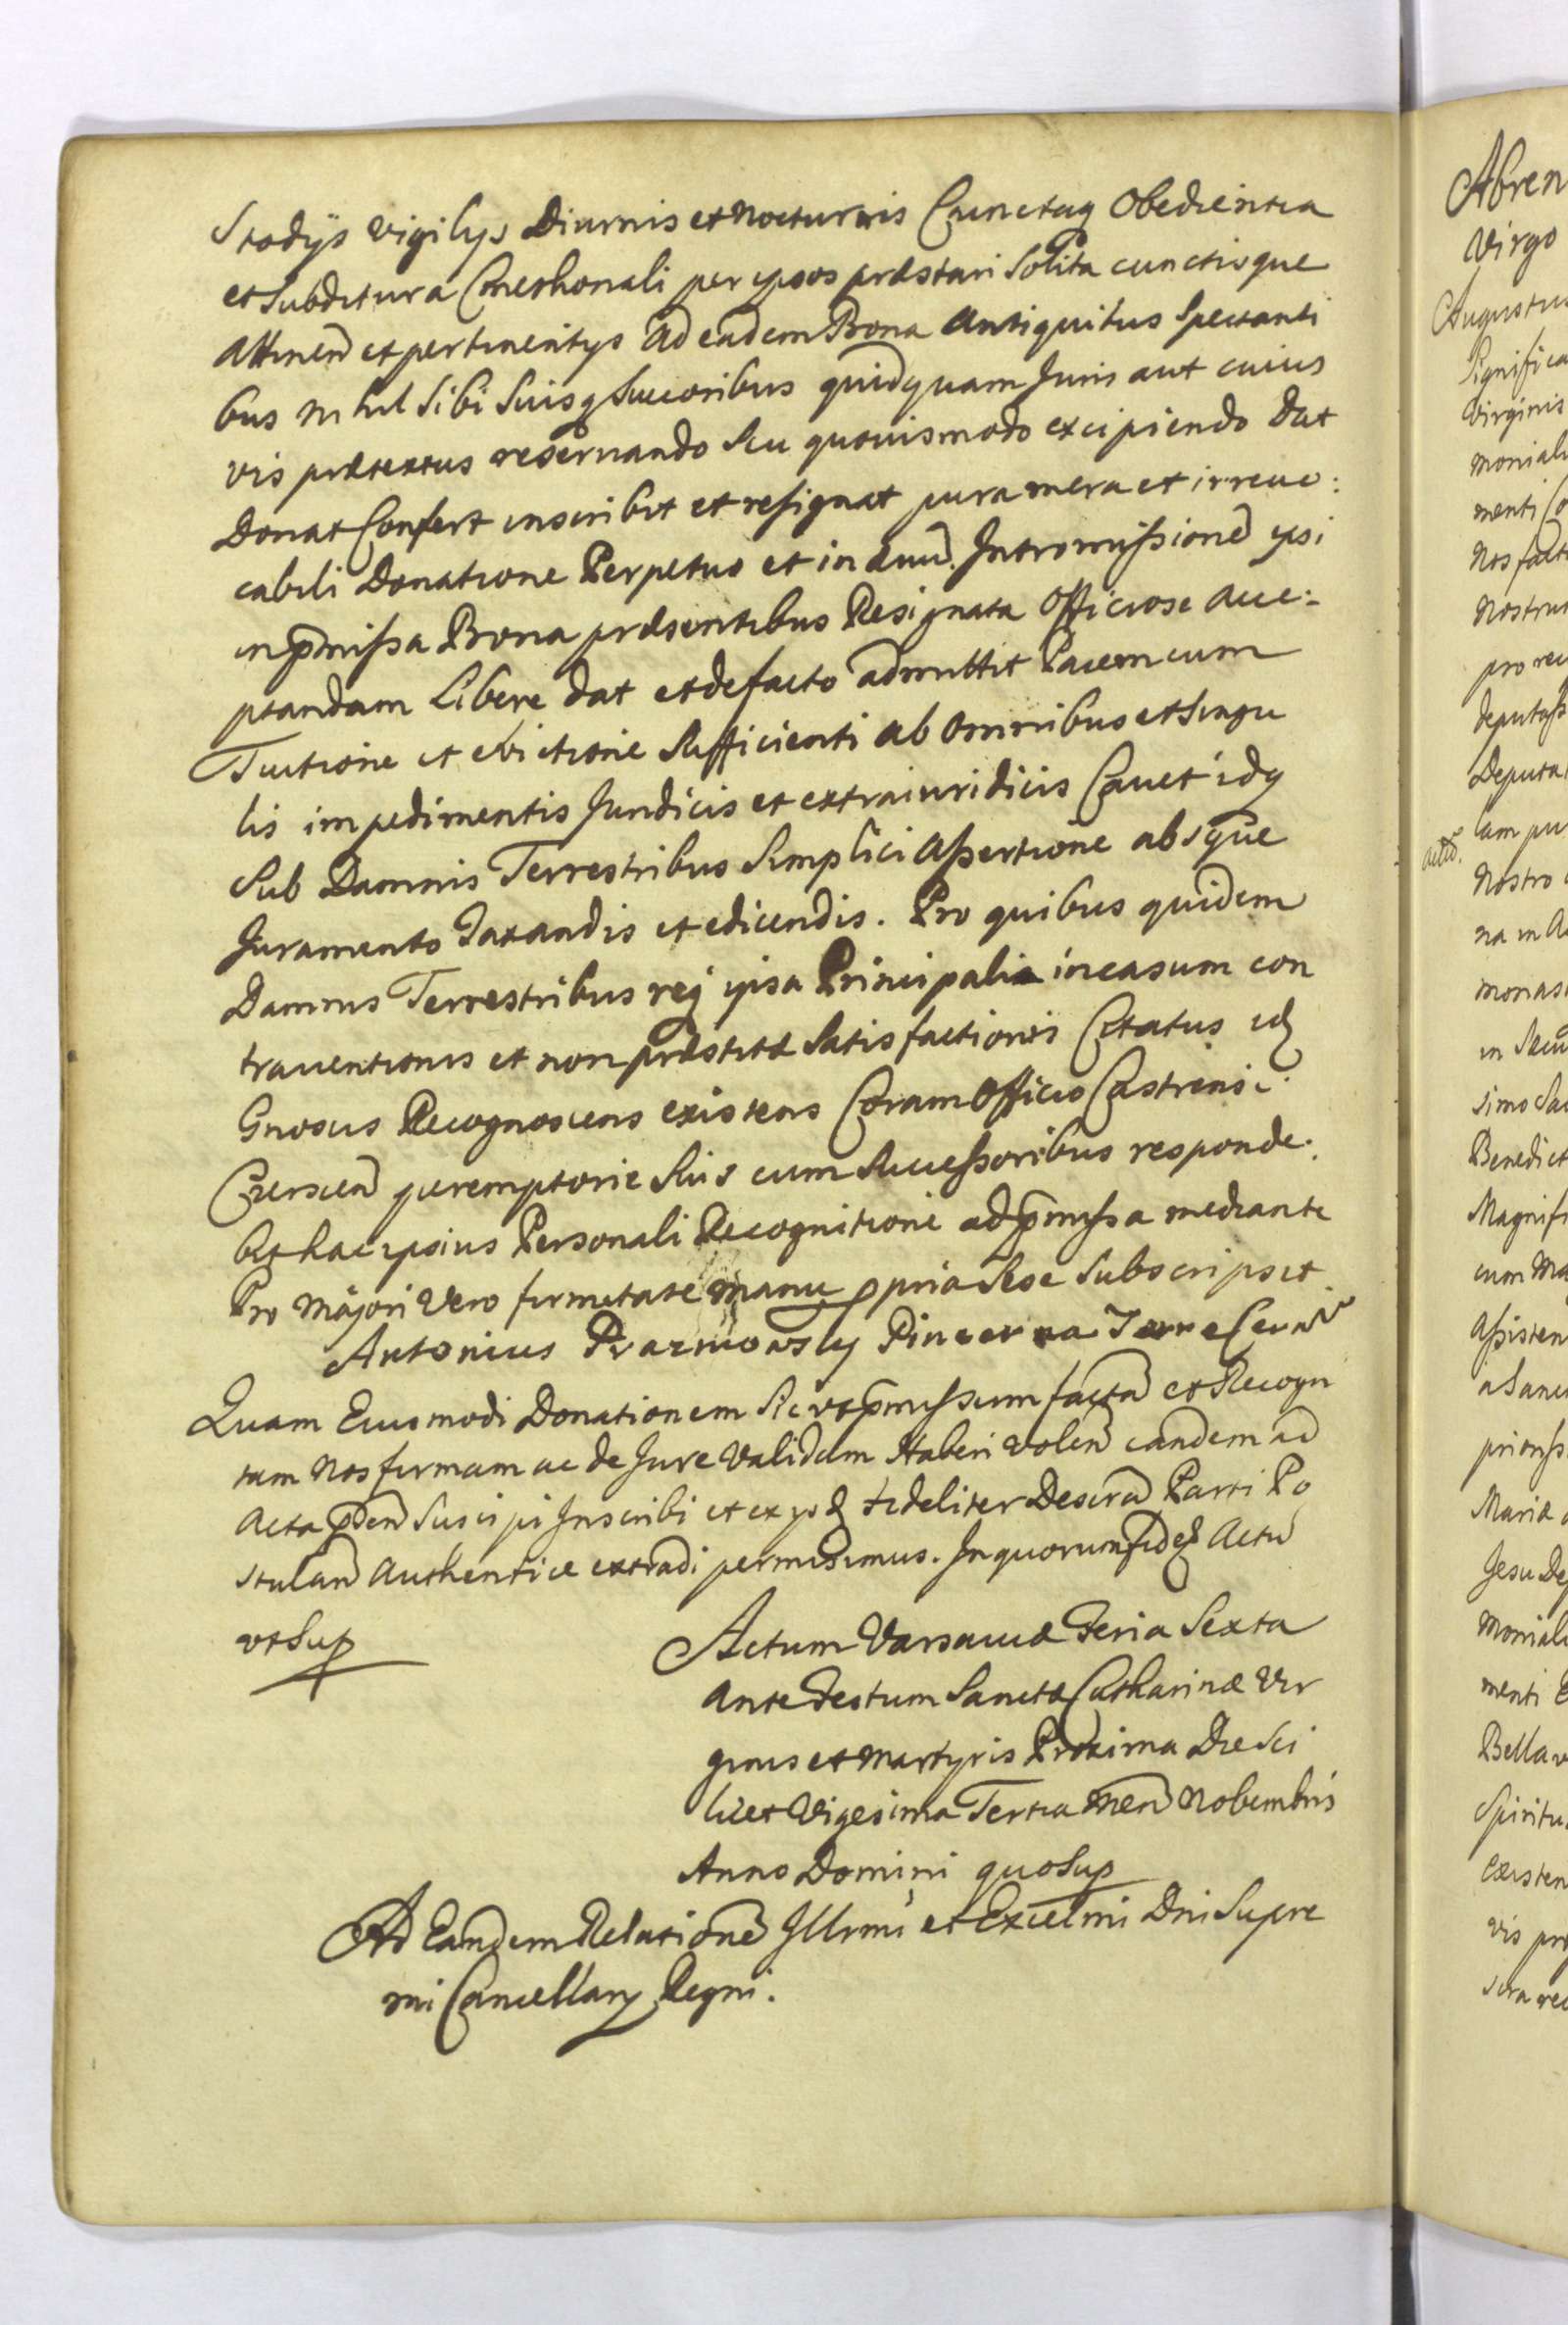 Stodijs vigilijs Diurnis et nocturnis Cunctaq Obedientia
et Subditura Cmethonali per ipsos præstari Solita cunctisque
Attinen et pertinentijs Ad eadem Bona Antiquitus Spectanti
bus nihil Sibi Suisq Succoribus quidquam Juris aut cuius
vis prætextus reservando Seu quovismodo excipiendo Dat
Donat Confert inscribit et resignat pura mera et irrevo:
cabili Donatione Perpetuo et in ævu. Intromissione ipsi
in pmissa Bona præsentibus Resignata Officiose acce:
ptandam Libere dat et de facto admittit Pacem cum
Tuitione et evictione Sufficienti ab Omnibus et Singu
lis impedimentis Juridicis et extraiuridicis Cavet idq
Sub Damnis Terrestribus Simplici Assertione absque
Juramento Taxandis et edicendis. Pro quibus quidem
Damnis Terrestribus reiq ipsa Principalia in casum con
traventionis et non præstitæ Satisfactionis Citatus id
Gnosus Recognoscens existens Coram Officio Castrensi
Cersicen peremptorie Suis cum Successoribus responde.
bit hac ipsius Personali Recognitione ad pmissa mediante
Pro Majori Vero firmitate manu ppria Sese Subscripsit
Antonius Prazmowsky Pincerna Terræ Cern
Quam Eiusmodi Donationem Sic ut pmissum facta et Recogni
tam Nos firmam ac de Jure Validam Haberi volen eandem ad
Acta pden Suscipi Inscribi et ex ijsd fideliter Descra Parti Po
stulan Authentice extradi permisimus. In quorum fid Actu
ut Sup
Actum Varsaviæ Feria Sexta
Ante Festum Sanctæ Catharinæ Vir
ginis et Martyris Proxima Die Sci
licet Vigesima Tertia Men Novembris
Anno Domini quo Sup
Ad Eandem Relatione Illrmi et Excelmi Dni Supre
mi Cancellary Regni.
Abren
Virgo
Augustus
Significa
Virginis
moniali
menti Co
Nos facti
Nostrut
pro rec
deputass
Deputa
lam pu
actu.
Nostro
na in A
monas
in Secu
simo Sa
Benedict
Magnifi
cum Ma
Assisten
a Sanc
prioriss
Mariæ
Jesu De
Moniali
menti
Bella
Spiritu
Existen
vis pro